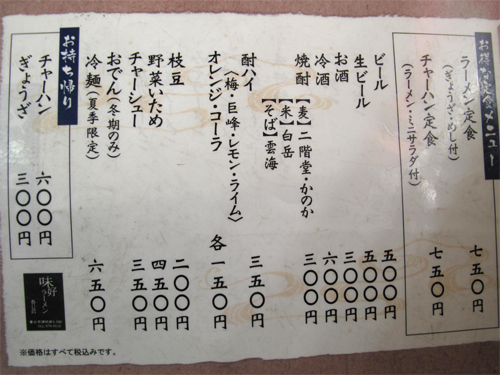 お得な定食メニュー
ラーメン定食 七五〇円
(ぎょうざ・めし付)
チャーハン定食 七五〇円
(ラーメン・ミニサラダ付)
ビール 五〇〇円
生ビール 五〇〇円
お酒 三〇〇円
冷酒 六〇〇円
焼酎 三〇〇円
【麦】二階堂・かのか
【米】白岳
【そば】雲海
酎ハイ 三五〇円
〈梅・巨峰・レモン・ライム〉
オレンジ・コーラ 各一五〇円
枝豆 二〇〇円
野菜いため 四五〇円
チャーシュー 三五〇円
おでん(冬期のみ)
冷麺(夏季限定) 六五〇円
お持ち帰り
チャーハン 六〇〇円
ぎょうざ 三〇〇円
味好
ラーメン
※価格はすべて税込みです。